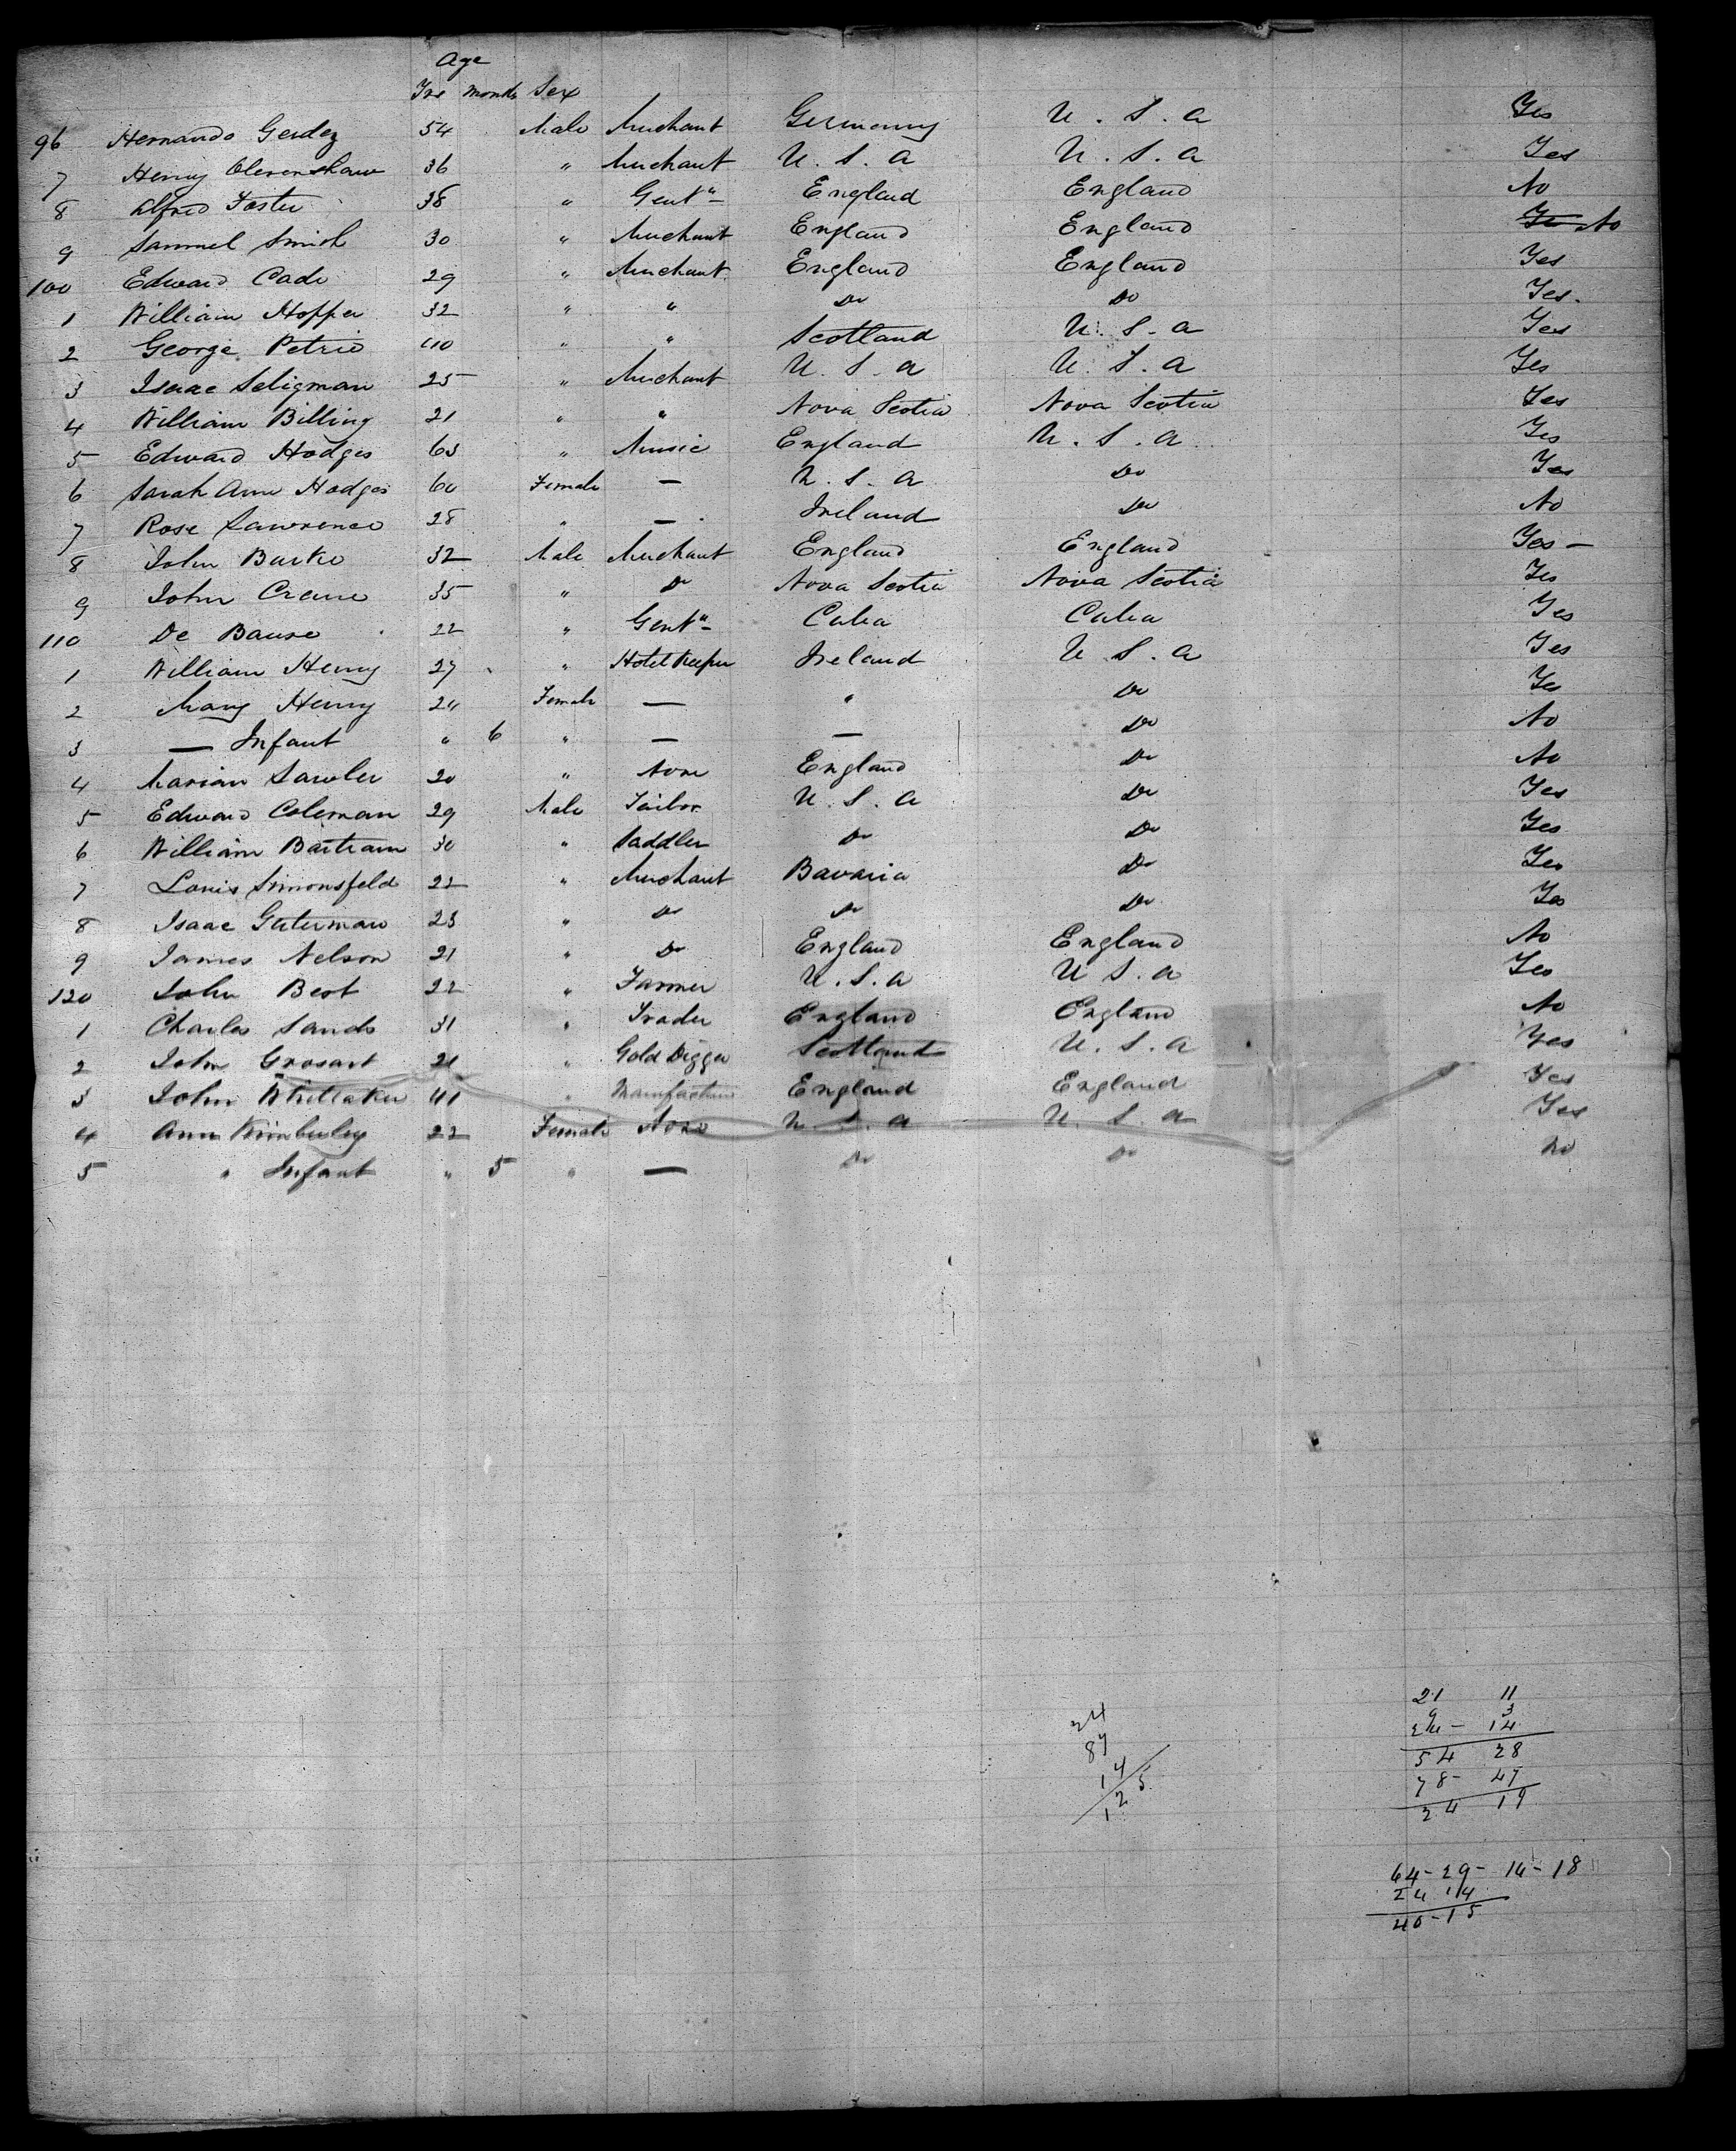 Age
Yrs Months Sex
96 Hernando Gerdez 54 Male Merchant Germany U. S. A Yes
7 Henry Olerenshaw 36 " Merchant U. S. A U. S. A Yes
8 Alfred Foster 38 " Gentn England England No
9 Samuel Smith 30 " Merchant England England Yes No
100 Edward Cade 29 " Merchant England England Yes
1 William Hopper 32 " " Do Do Yes.
2 George Petrie 40 " " Scotland U. S. A Yes
3 Isaac Seligman 25 " Merchant U. S. A U. S. A Yes
4 William Billing 21 " " Nova Scotia Nova Scotia Yes
5 Edward Hodges 63 " Music England U. S. A. Yes
6 Sarah Ann Hodges 60 Female — U. S. A Do Yes
7 Rose Lawrence 28 " — Ireland Do No
8 John Burke 32 Male Merchant England England Yes —
9 John Crane 35 " Do Nova Scotia Nova Scotia Yes
110 De Bause 22 " Gentn Cuba Cuba Yes
1 William Henry 27 " Hotel Keeper Ireland U. S. A Yes
2 Mary Henry 24 Female — " Do Yes
3 — Infant " 6 " — — Do No
4 Marian Lawler 20 " None England Do No
5 Edward Coleman 29 Male Tailor U. S. A Do Yes
6 William Bartram 30 " Saddler Do Do Yes
7 Louis Simonsfeld 22 " Merchant Bavaria Do Yes
8 Isaac Guterman 23 " Do Do Do Yes
9 James Nelson 21 " Do England England No
120 John Best 22 " Farmer U. S. A U S. A Yes
1 Charles Sands 31 " Trader England England No
2 John Grosart 21 " Gold Digger Scotland U. S. A Yes
3 John Whittaker 41 " Manufacturer England England Yes
4 Ann Kimberley 22 Female None U. S. A U. S. A Yes
5 " Infant " 5 " — Do Do No
21 11
9 3
24 — 14
54 28
78 — 47
24 19
24
87
14
125
64 - 29 - 14 - 18
24 14
40 - 15